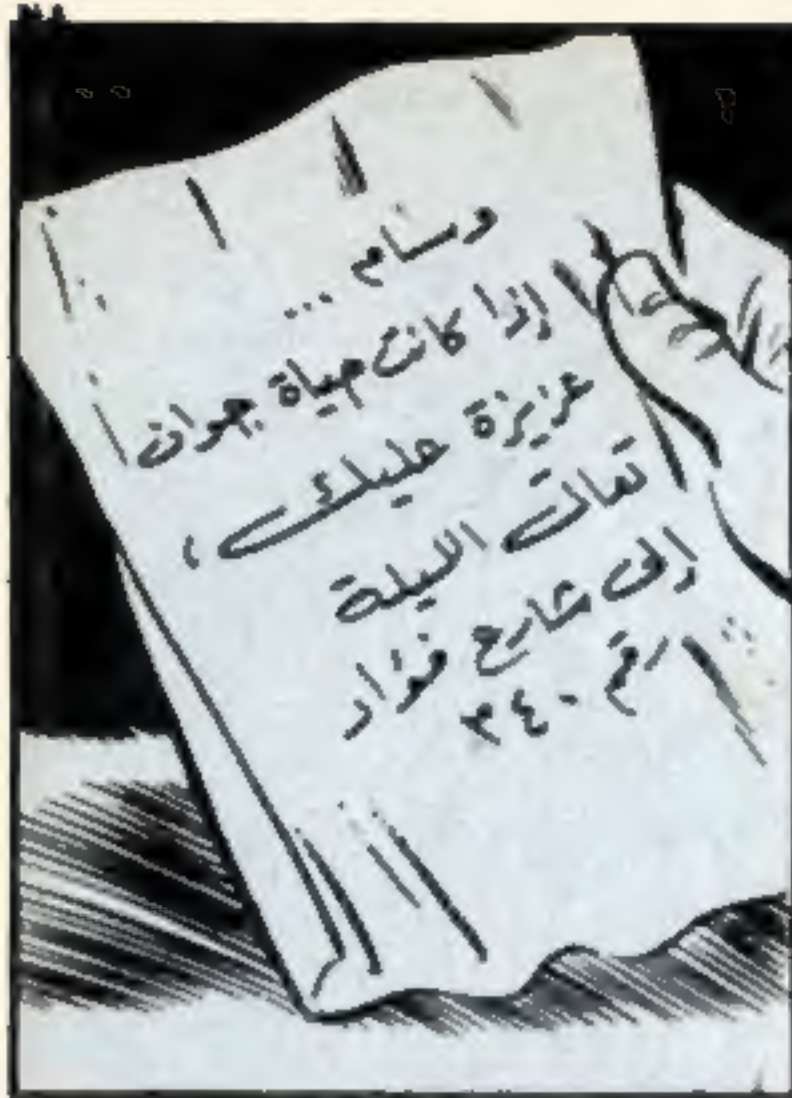 وسام ...
إذا كانت حياة جوان
عزيزة عليك ،
تعالى الليلة
إلى شارع فؤاد
رقم ٣٤٠